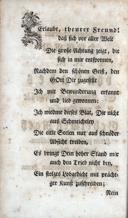 Erlaubt, theurer Freund!
daß sich vor aller Welt
Die große Achtung zeigt, die
sich in mir entsponnen,
Nachdem den schönen Geist, den
GOtt Dir zugesellt
Ich mit Bewunderung erkannt
und lieb gewonnen:
Ich wiedme dieses Blat, Die nicht
aus Schmeicheley
Die eitle Seelen nur aus schnöder
Absicht treiben,
Es bringt Dein hoher Stand mir
auch den Trieb nicht bey,
Ein stolzes Lobgedicht mit prächt-
ger Kunst zuschreiben;
Nein